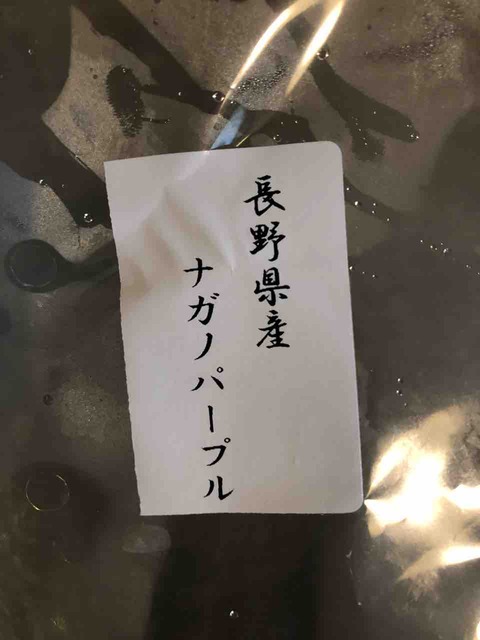 長野県産
ナガノパープル